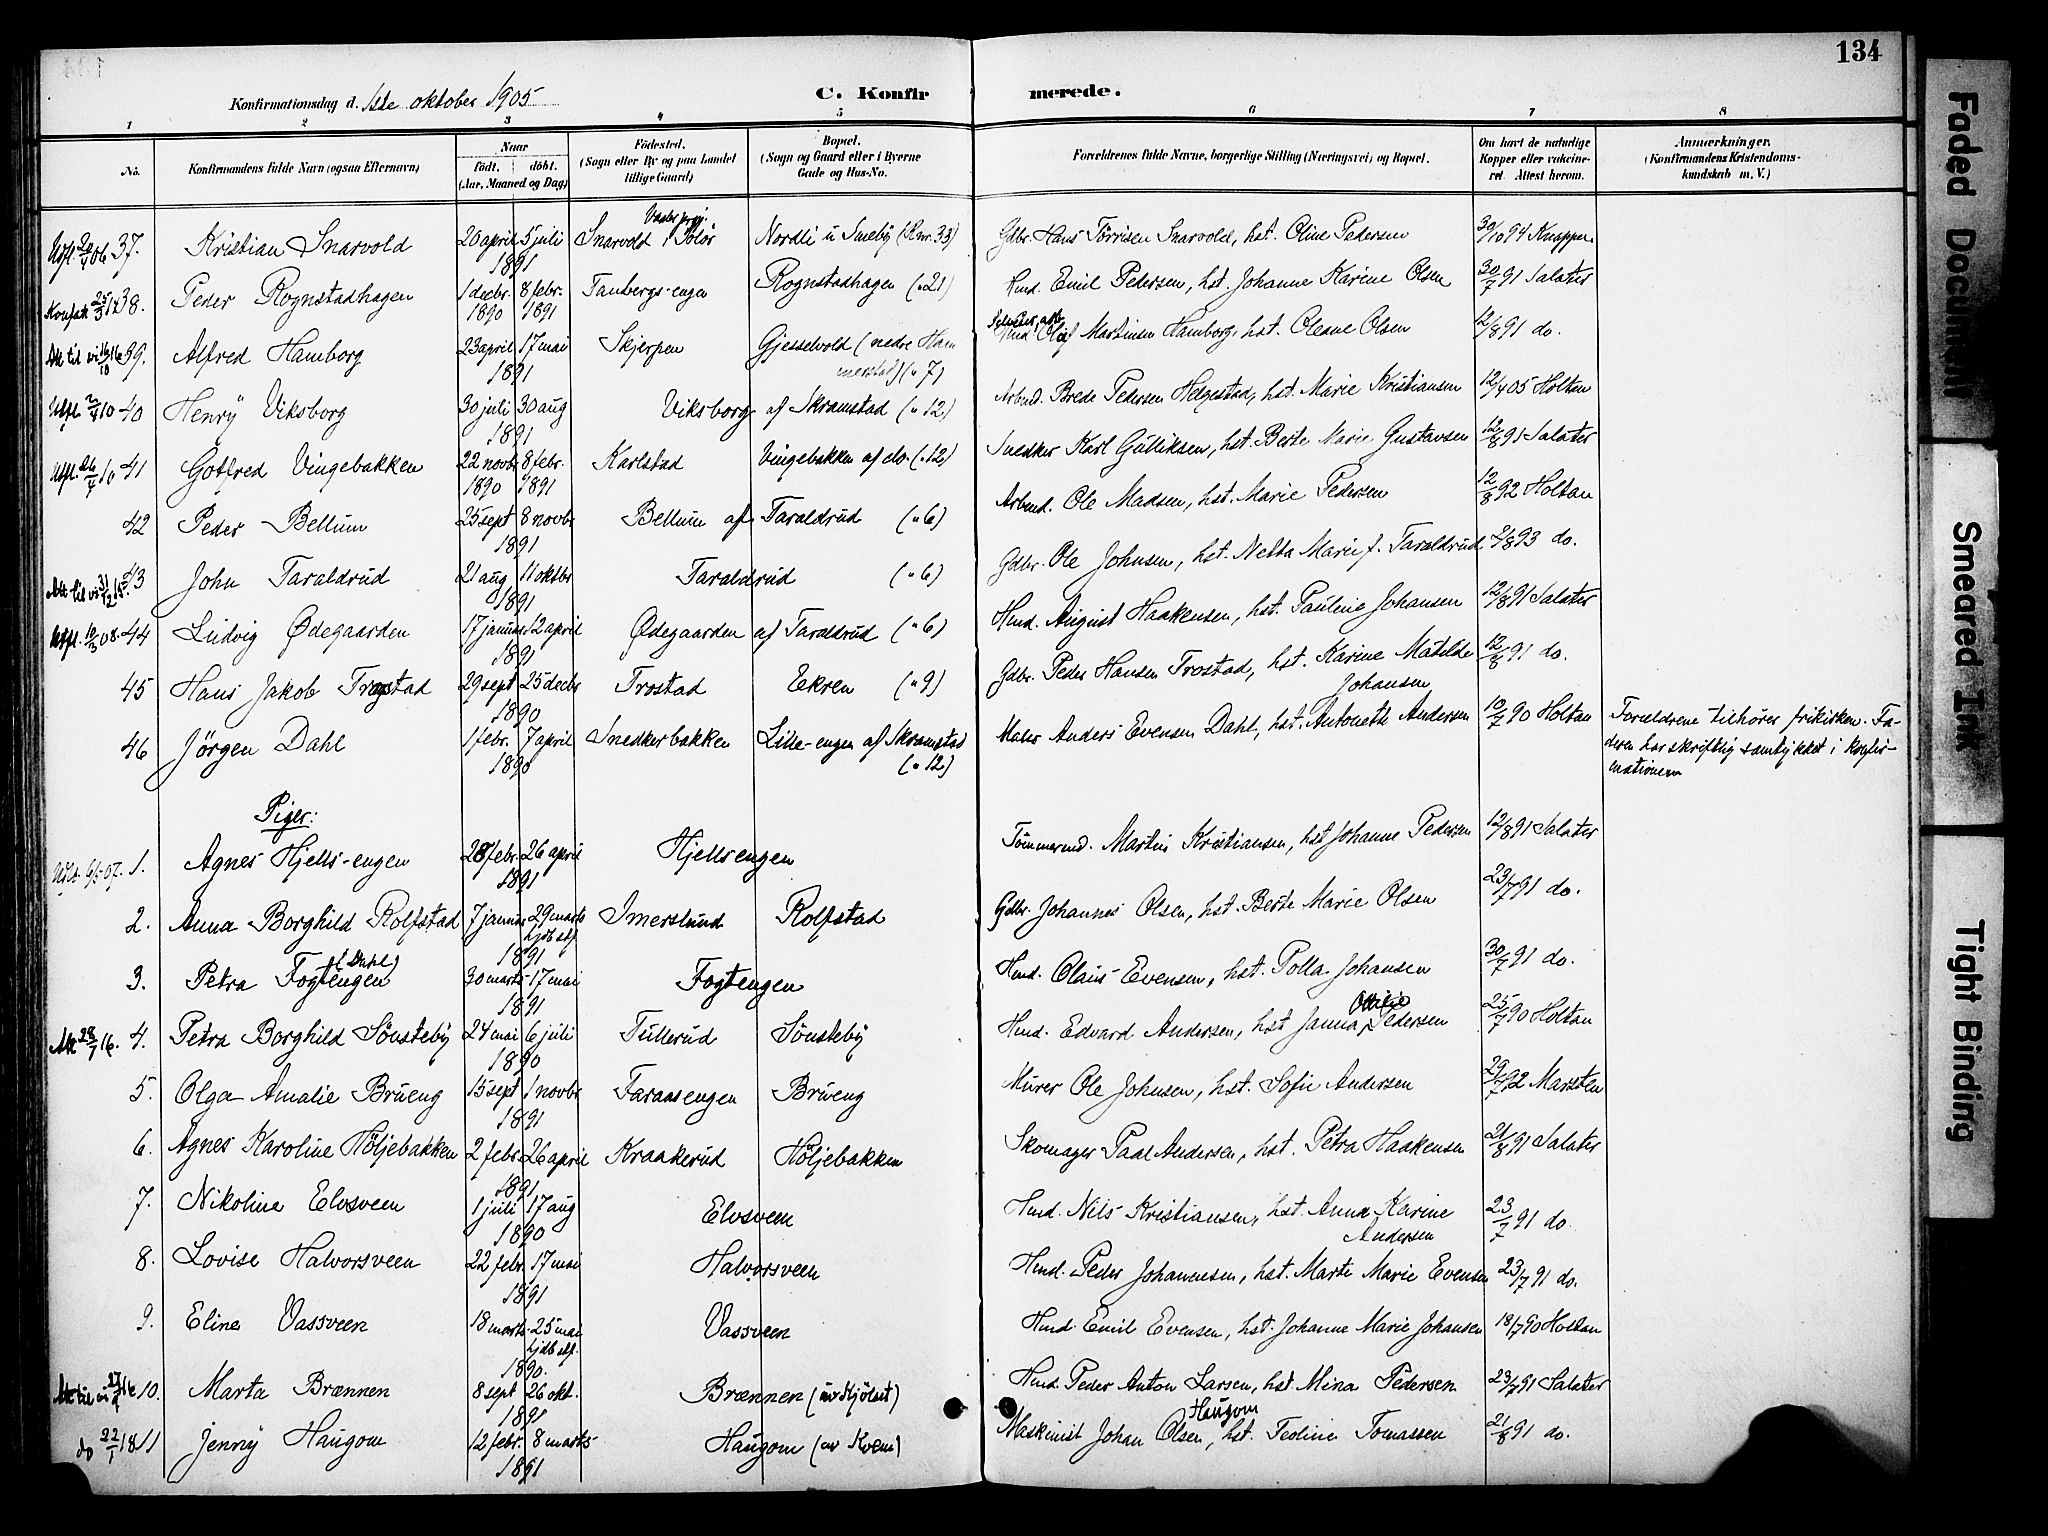 134
Konfirmationsdag d. 1ste oktober 1905
C. Konfirmerede.
1 2 3 4 5 6 7 8
No.
Konfirmandens fulde Navn (ogsaa Efternavn)
Naar
födt. döbt.
(Aar, Maaned og Dag)
Födested.
(Sogn eller By og paa Landet
tillige Gaard)
Bopæl.
(Sogn og Gaard eller i Byerne
Gade og Hus-No.
Forældrenes fulde Navne, borgerlige Stilling (Næringsvei) og Bopæl.
Om havt de naturlige
Kopper eller vaccine-
ret. Attest herom.
Anmærkninger.
(Konfirmandens Kristendoms-
kundskab m. V.)
37. Kristian Snarvold 20 april 5 juli 1891 Snarvold i Solør Nordli u Smeby (Rnr. 33) Gdbr. Hans Törrisen Snarvold, hst. Oline Pedersen 30/10 94
38. Peder Rognstadhagen 1 decbr. 1890 8 febr. 1891 Taubergs-engen Rognstadhagen („ 21) Hmd. Emil Pedersen, hst. Johanne Karine Olsen 30/7 91 Salater
39. Alfred Hamborg 23 april 17 mai 1891 Skjerpen Gjesselvold (nedre Ham
merstad) („ 7) Olaf Martinsen Hamborg, hst. Oleane Olsen 12/8 91 do.
Utfl. 2/4 10 40 Henry Viksborg 30 juli 30 aug 1891 Viksborg af Skramstad („ 12) Arbmd. Brede Pedersen Helgestad, hst. Marie Kristiansen 12/4 05 Holtan
Utfl. 26/4 10 41 Gotfred Vingebakken 22 novb. 1890 8 febr. 1891 Karlstad Vingebakken af do. („ 12) Snedker Karl Gulliksen, hst. Berte Marie Gustavsen 12/8 91 Salater
42 Peder Bellum 25 sept 8 novb. 1891 Bellum af Taraldrud („ 6) Arbmd. Ole Madsen, hst. Marie Pedersen 12/8 92 Holtan
43 John Taraldrud 21 aug 11 oktbr 1891 Taraldrud („ 6) Gdbr. Ole Johnsen, hst. Netta Marie f. Taraldrud 2/8 93 do.
Utfl. 10/3 08. 44 Ludvig Ødegaarden 17 januar 12 april 1891 Ødegaarden af Taraldrud („ 6) Hmd. August Haakensen, hst. Pauline Johansen 12/8 91 Salater
45 Hans Jakob Trostad 29 sept 25 decbr 1890 Trostad Ekren („ 9) Gdbr. Peder Hansen Trostad, hst. Karine Matilde
Johansen 12/8 91 do.
46 Jörgen Dahl 1 febr. 7 april 1890 Snedkerbakken Lille-engen af Skramstad
(„ 12) Maler Anders Evensen Dahl, hst. Antoneth Andersen 10/7 90 Holtan Forældrene tilhører frikirken. Fa-
deren har skriftlig samtykket i konfir-
mationen
Piger:
1. Agnes Hjells-engen 28 febr. 26 april 1891 Hjellsengen Tömmermd. Martin Kristiansen, hst Johanne Pedersen 12/8 91 Salater
2. Anna Borghild Rolfstad 7 januar 29 marts hjdb stf. 1891 Imerslund Rolfstad Gdbr. Johannes Olsen, hst. Berte Marie Olsen 23/7 91 do.
3. Petra Fogtengen (Dahl) 30 marts 17 mai 1891 Fogtengen Hmd. Olaus Evensen, hst. Polla Johansen 30/7 91 do.
4. Petra Borghild Sönsteby 24 mai 6 juli 1890 Tullerud Sönsteby Hmd. Edvard Andersen, hst Janna Pedersen 25/7 90 Holtan
5. Olga Amalie Brueng 15 sept 1 novbr 1891 Faraasengen Brueng Murer Ole Johnsen, hst. Sofie Andersen 29/7 92 Marsten
6. Agnes Karoline Höljebakken 2 febr. 26 april 1891 Kraakerud Höljebakken Skomager Paal Andersen, hst. Petra Haakensen 21/8 91 Salater
7. Nikoline Elvsveen 1 juli 17 aug 1890 Elvsveen Hmd. Nils Kristiansen, hst. Anna Karine
Andersen 23/7 91 do.
8. Lovise Halvorsveen 22 febr. 17 mai 1891 Halvorsveen Hmd. Peder Johannesen, hst. Marte Marie Evensen 23/7 91 do.
9. Eline Vassveen 18 marts 25 mai hjdb stf. 1890. Vassveen Hmd. Emil Evensen, hst. Johanne Marie Johansen 18/7 90 Holtan
10. Marta Brænnen 8 sept 26 okt. 1891 Brænnen (av Hjölset) Hmd. Peder Anton Larsen, hst. Mina Pedersen 23/7 91 Salater
do 22/1 18 11 Jenny Haugom 12 febr. 8 marts 1891 Haugom (av Kvem) Maskinist Johan Olsen Haugom, hst. Teoline Tomassen 21/8 91 do.
Faded Document
Smeared Ink
Tight Binding